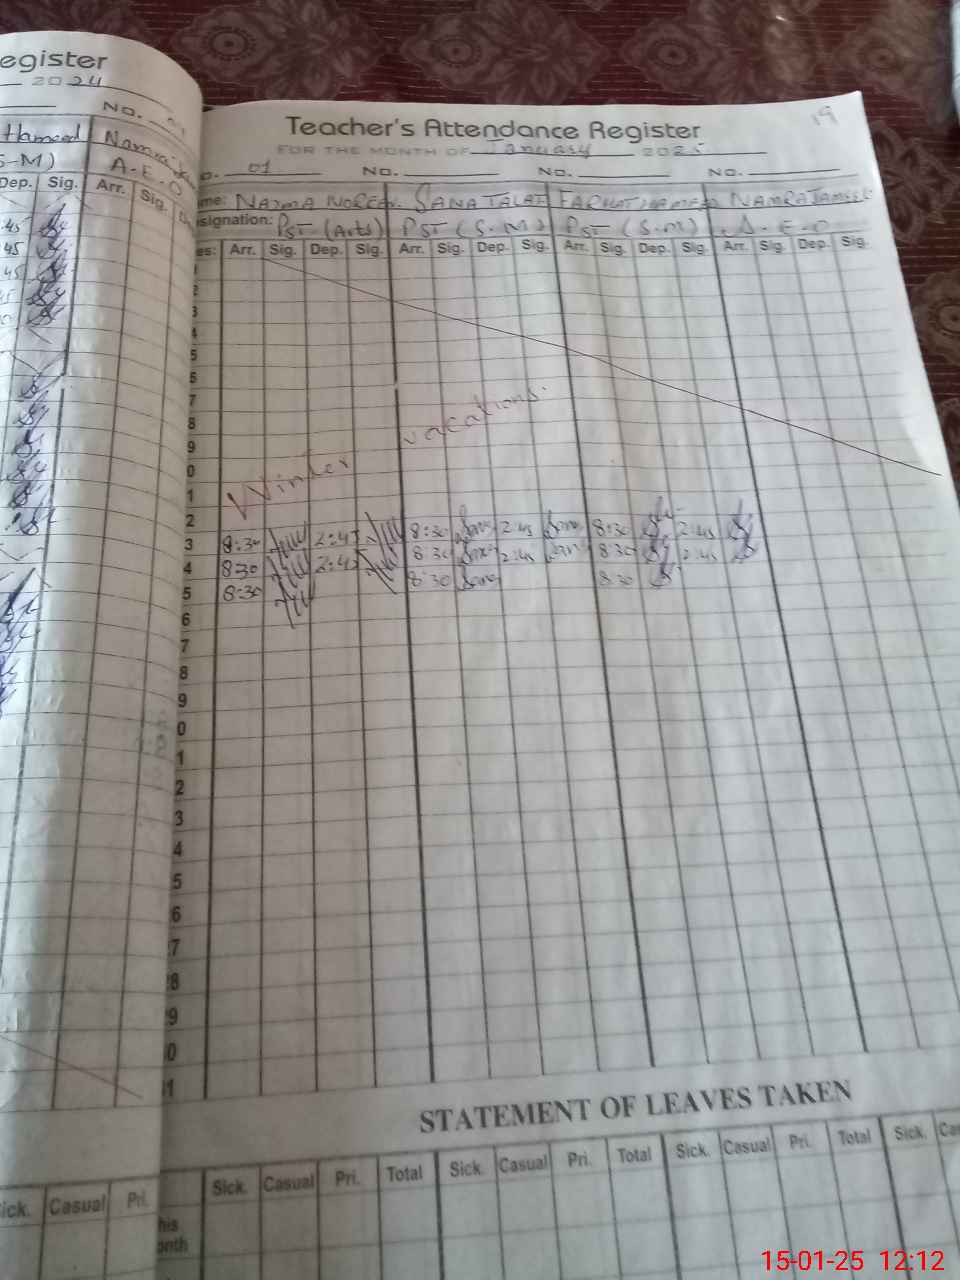 egister
2024
No.
Hameed Namra
S-M) A.E.O
Dep. Sig. Arr. Sig.
Sick. Casual Pri.
19
Teacher's Attendance Register
FOR THE MONTH OF January 2025
o. 01 No. No. No.
me: NAJMA NOREEN. SANA TALAT FARHAT HAMEED NAMRA JAMEEL
signation: PST (Arts) PST (S.M) PST (S.M) A.E.O
es: Arr. Sig. Dep. Sig. Arr. Sig. Dep. Sig. Arr. Sig. Dep. Sig. Arr. Sig. Dep. Sig.
2
3
4
5
6
7
8
9
0
1
Winter vacations.
2
3 8:30 2:45 8:30 Sana 2:45 Sana 8:30 2:45
4 8:30 2:45 8:30 Sana 2:45 Sana 8:30 2:45
5 8:30 8:30 Sana 8:30
6
7
8
9
0
1
2
3
4
5
6
7
8
9
0
1
STATEMENT OF LEAVES TAKEN
Sick. Casual Pri. Total Sick. Casual Pri. Total Sick. Casual Pri. Total Sick. Cas
his
onth
15-01-25 12:12